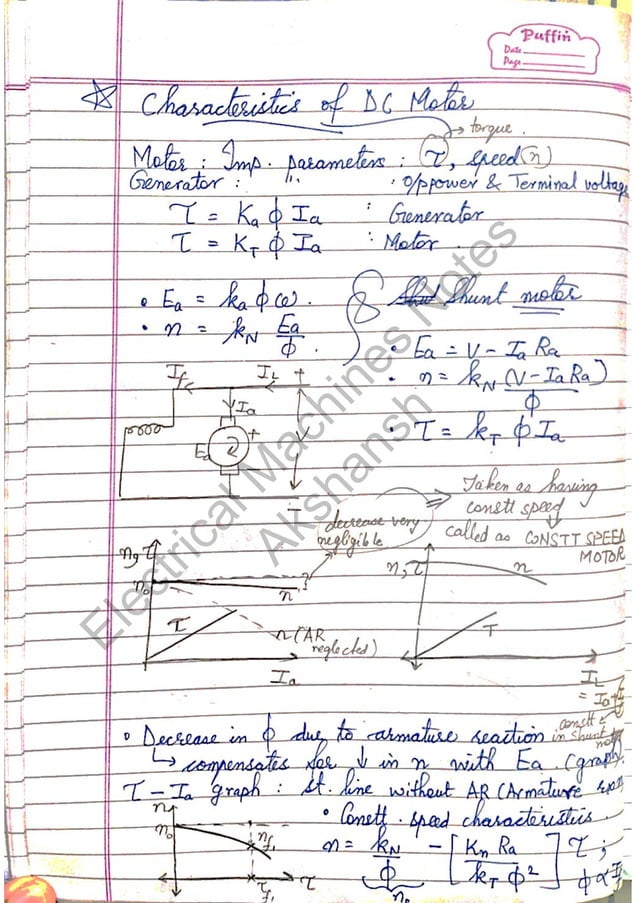 Puffin
Date
Page
Characteristics of DC Motor
→ torque.
Motor : Imp. parameters : τ, speed (n)
Generator : " : O/p power & Terminal voltage
τ = Ka ϕ Ia : Generator
τ = KT ϕ Ia : Motor.
• Ea = ka ϕ ω.
• n = kN Ea/ϕ.
Shunt motor
• Ea = V - Ia Ra
• n = kN (V - Ia Ra)/ϕ
• τ = kT ϕ Ia
If IL +
Ia
Ea +
Taken as having
constt speed
called as CONSTT SPEED
MOTOR
decrease very
negligible
n, τ
n₀
n
τ
n (AR
neglected)
Ia
n, τ
n
τ
IL
= Ia + If
constt
in shunt
• Decrease in ϕ due to armature reaction
↳ compensates for ↓ in n with Ea. (graph).
τ - Ia graph : st. line without AR (Armature
n
n₀
nf'
τf'
τ
• Constt. speed characteristics.
n = kN/ϕ - [Kn Ra/kT ϕ²] τ ;
n₀
ϕ ∝ If
Electrical Machines Notes
Akshansh